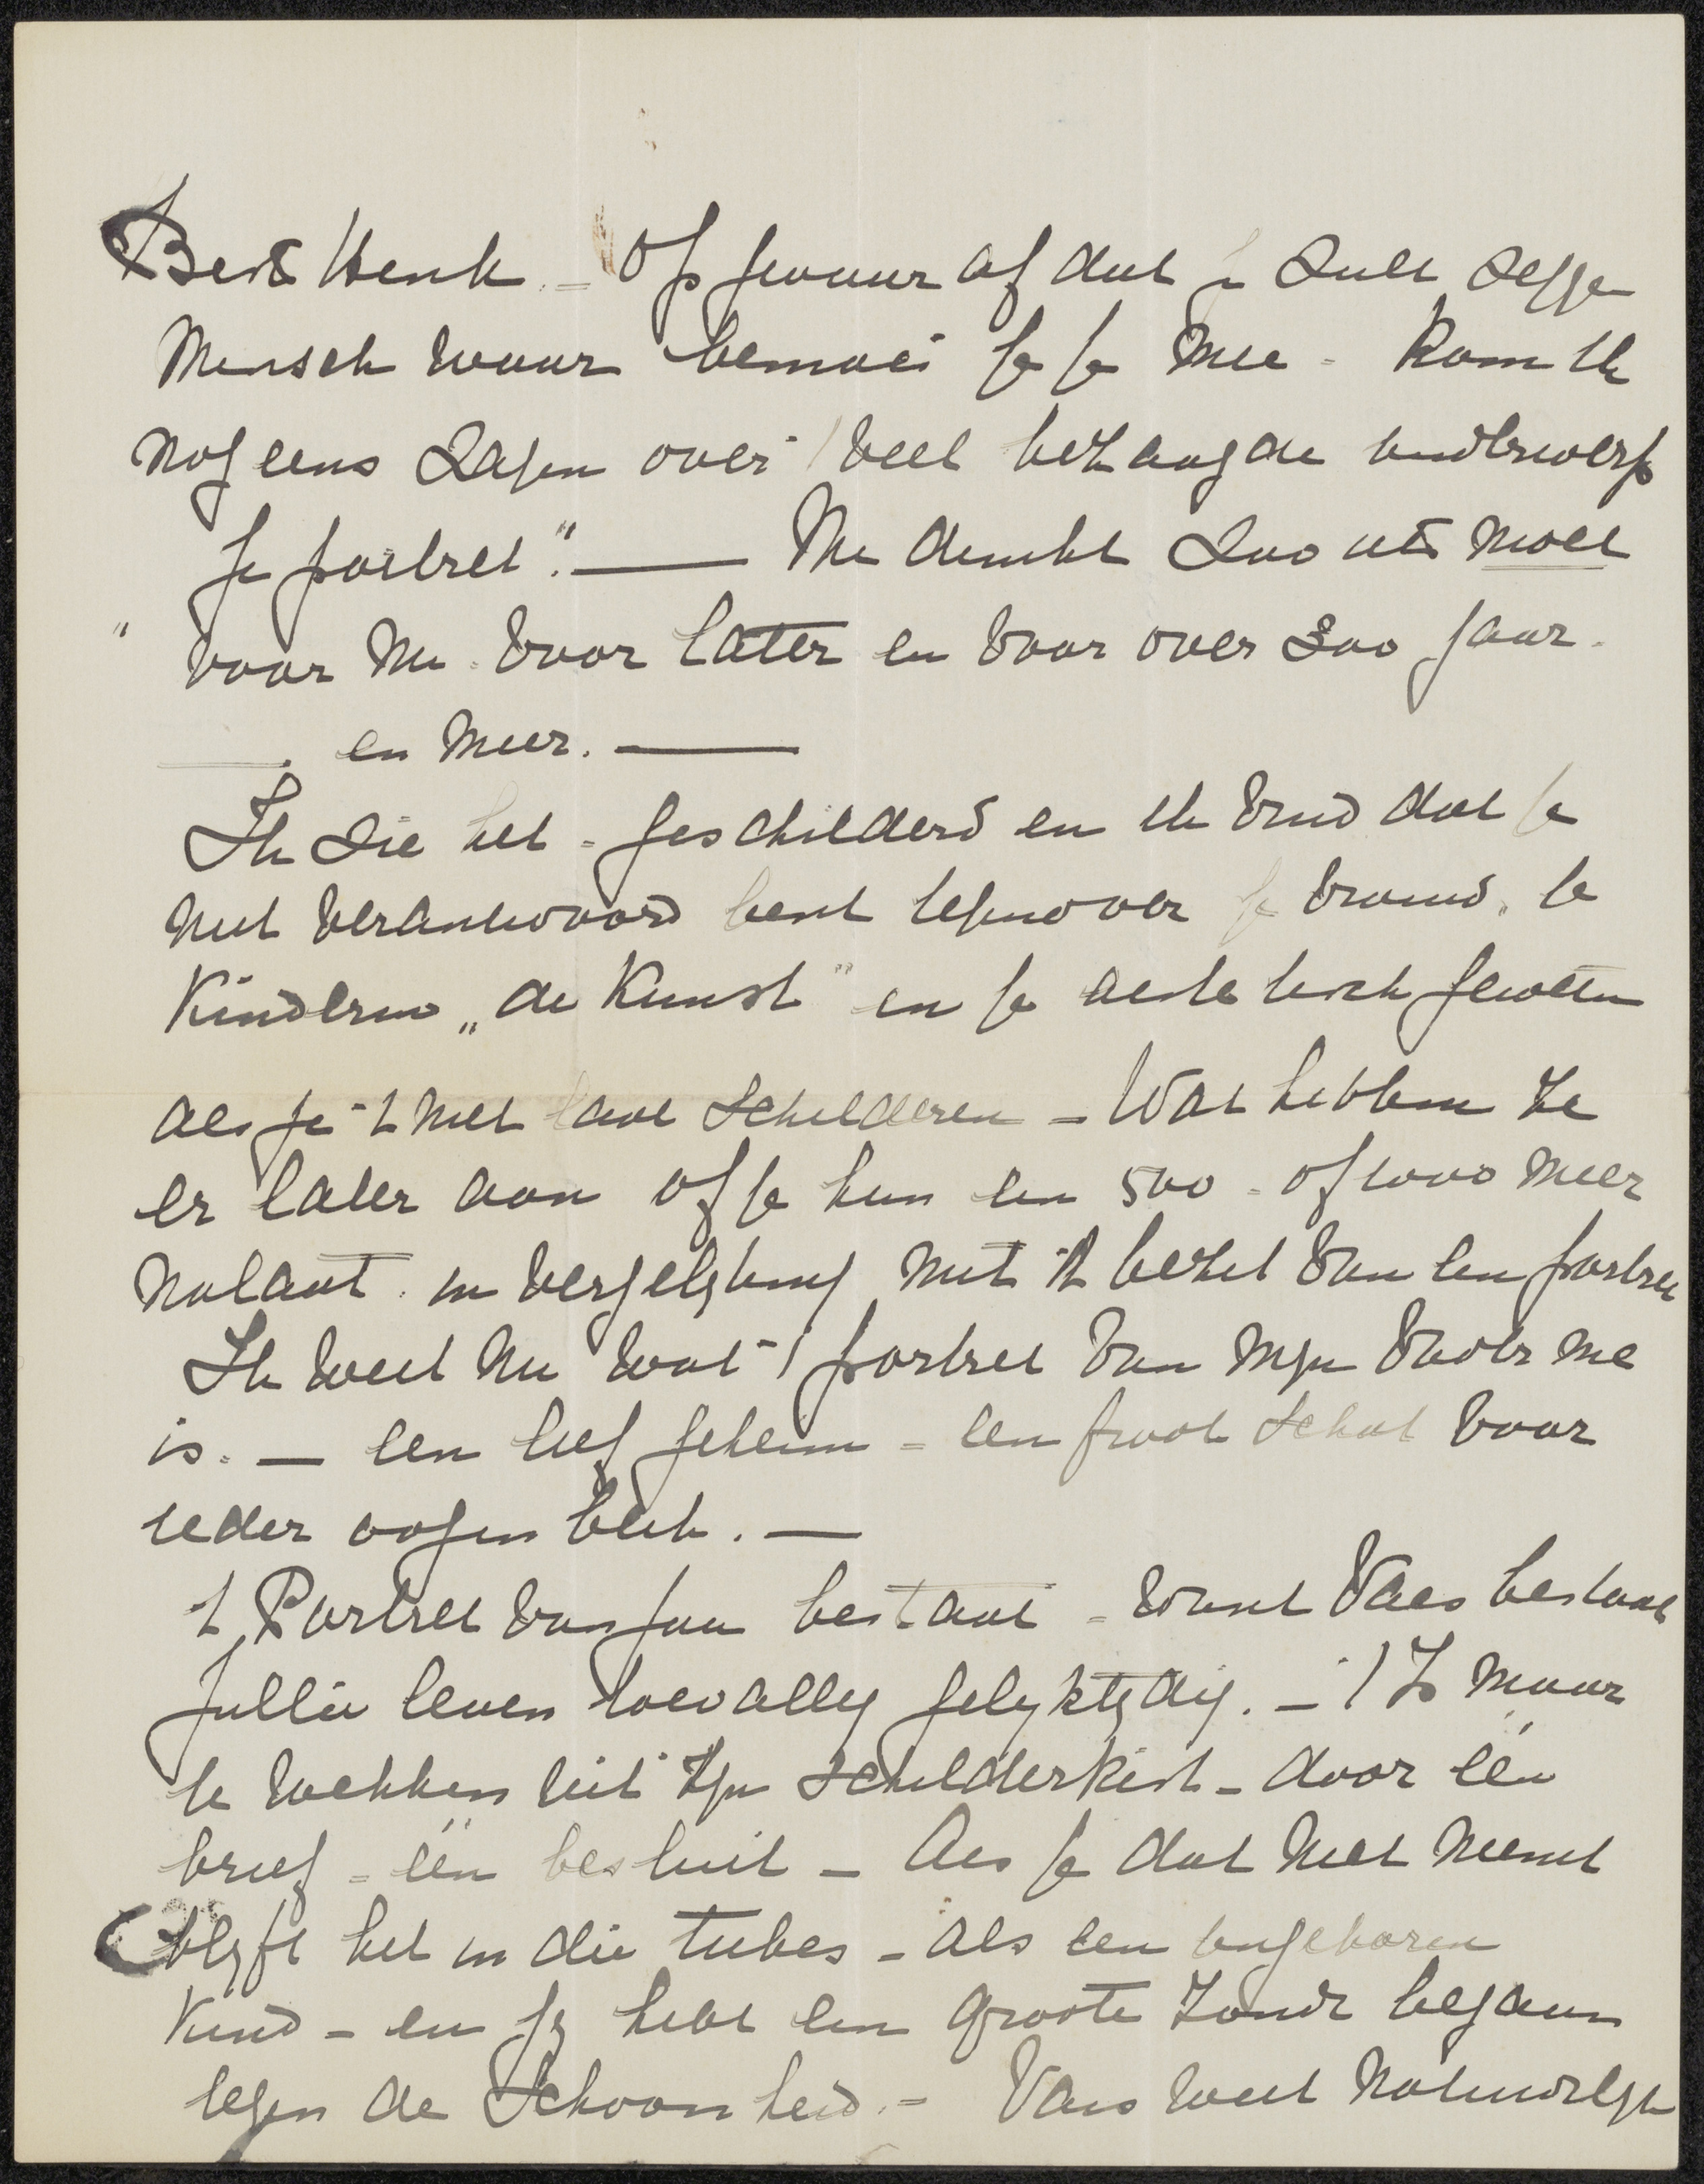 Beste Henk. = Op gevaar af dat je zult zegge
Mensch waar bemoei je je mee - kom ik
nog eens zagen over 't veel belangde onderwerp
"je portret". — Me dunkt zoo iets moet
voor nu. voor later en voor over 300 jaar.
—. en meer. —
Ik zie het - geschilderd en ik vind dat je
niet verantwoord bent tegenover je vrouw. je
Kinderen „de Kunst" en je aesthetisch geweten
als je 't niet laat schilderen - Wat hebben ze
er later aan of je hun een 500 - of 1000 meer
nalaat. in vergelyking met 't bezit van een portret
Ik weet nu wat 't portret van myn vader me
is. — een lief geheim = een groot schat voor
ieder oogenblik. —
't Portret van jou bestaat - want Vaes bestaat
jullie leven toevallig gelyktydig. - 't Is maar
te wekken uit zyn schilderkist - door één
brief = één besluit - Als je dat niet neemt
blyft het in die tubes - als een ongeboren
Kind - en jy hebt een groote zonde begaan
tegen de Schoonheid. = Vaes weet natuurlyk